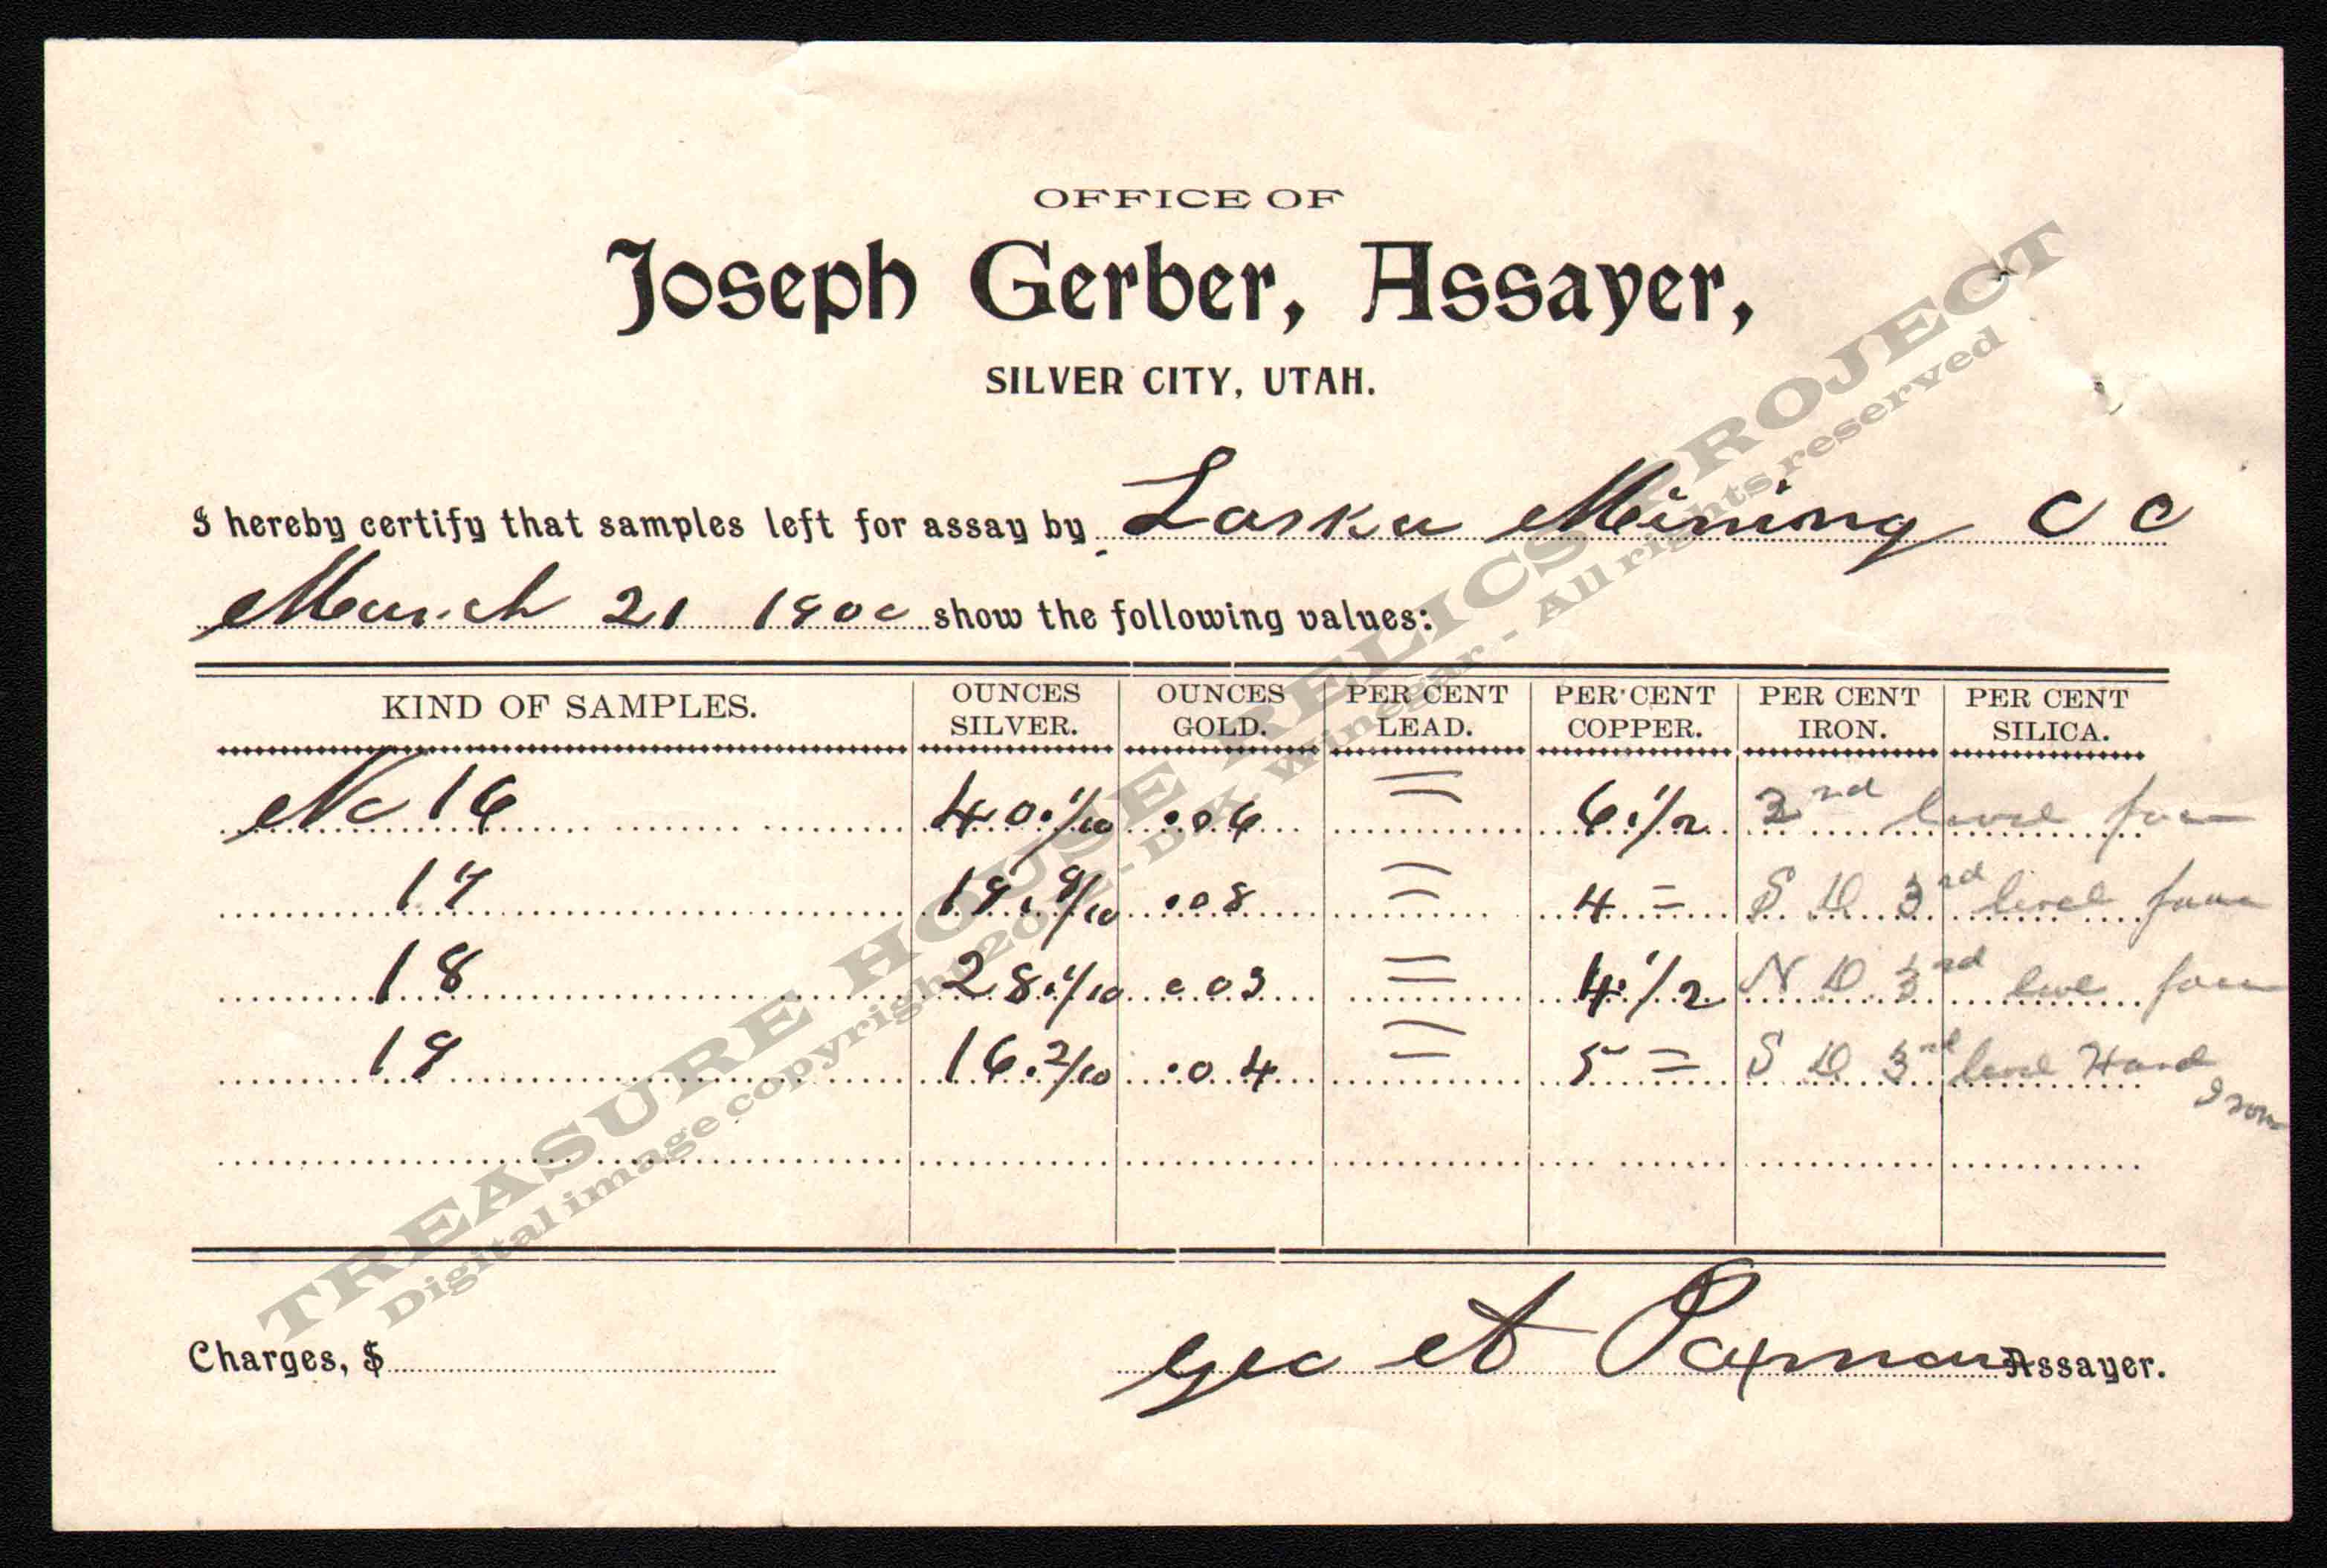 OFFICE OF
Joseph Gerber, Assayer,
SILVER CITY, UTAH.
I hereby certify that samples left for assay by Laska Mining Co
March 21 1900 show the following values:
KIND OF SAMPLES. OUNCES SILVER. OUNCES GOLD. PER CENT LEAD. PER CENT COPPER. PER CENT IRON. PER CENT SILICA.
No 16 40.1/10 .06 = 6.1/2 2nd level face
17 19.9/10 .08 = 4 = S D 3rd level face
18 28.1/10 .03 = 4.1/2 N D 3rd level face
19 16.2/10 .04 = 5 = S D 3rd level Hard
Iron
Charges, $ Geo A Paxman Assayer.
TREASURE HOUSE RELICS PROJECT
Digital image copyright - D.K. Winegar - All rights reserved